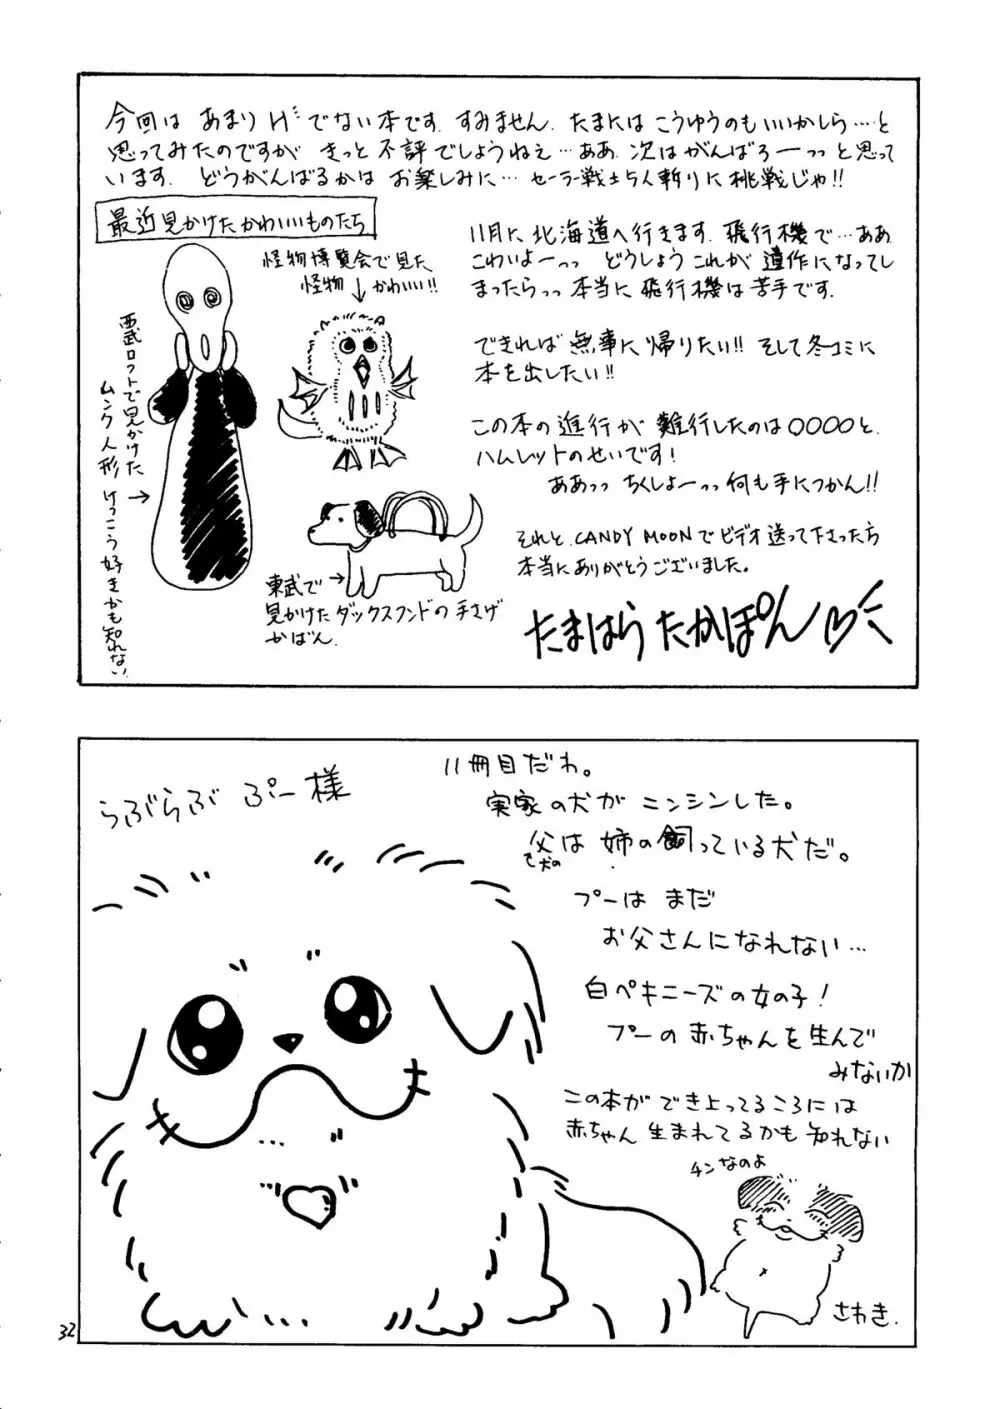 今回は あまり Hでない本です。すみません。たまには こうゆうのもいいかしら…と
思ってみたのですが きっと 不評でしょうねえ…ああ 次はがんばろーっっと思って
います。 どうがんばるかは お楽しみに… セーラー戦士5人斬りに挑戦じゃ!!
最近見かけたかわいいものたち
怪物博覧会で見た
怪物→かわいい!!
西武ロフトで見かけた
ムンク人形
けっこう好きかも知れない。
東武で
見かけたダックスフンドの手さげ
かばん。
11月に北海道へ行きます。飛行機で…ああ
こわいよーっっ どうしよう これが 遺作になってし
まったらっっ 本当に 飛行機は苦手です。
できれば 無事に帰りたい!! そして冬コミに
本を出したい!!
この本の進行が 難行したのは○○○○と、
ハムレットのせいです!
ああっっ ちくしょーっっ何も手につかん!!
それと、CANDY MOONでビデオ送って下さった方
本当にありがとうございました。
たまはら たかぽん
らぶらぶ ぷー様
11冊目だわ。
実家の犬が ニンシンした。
父は 姉の飼っている犬だ。
プーは まだ
お父さんになれない…
白ペキニーズの女の子!
プーの赤ちゃんを生んで
みないか
この本が でき上ってるころには
赤ちゃん 生まれてるかも知れない
チンなのよ
さわき.
32